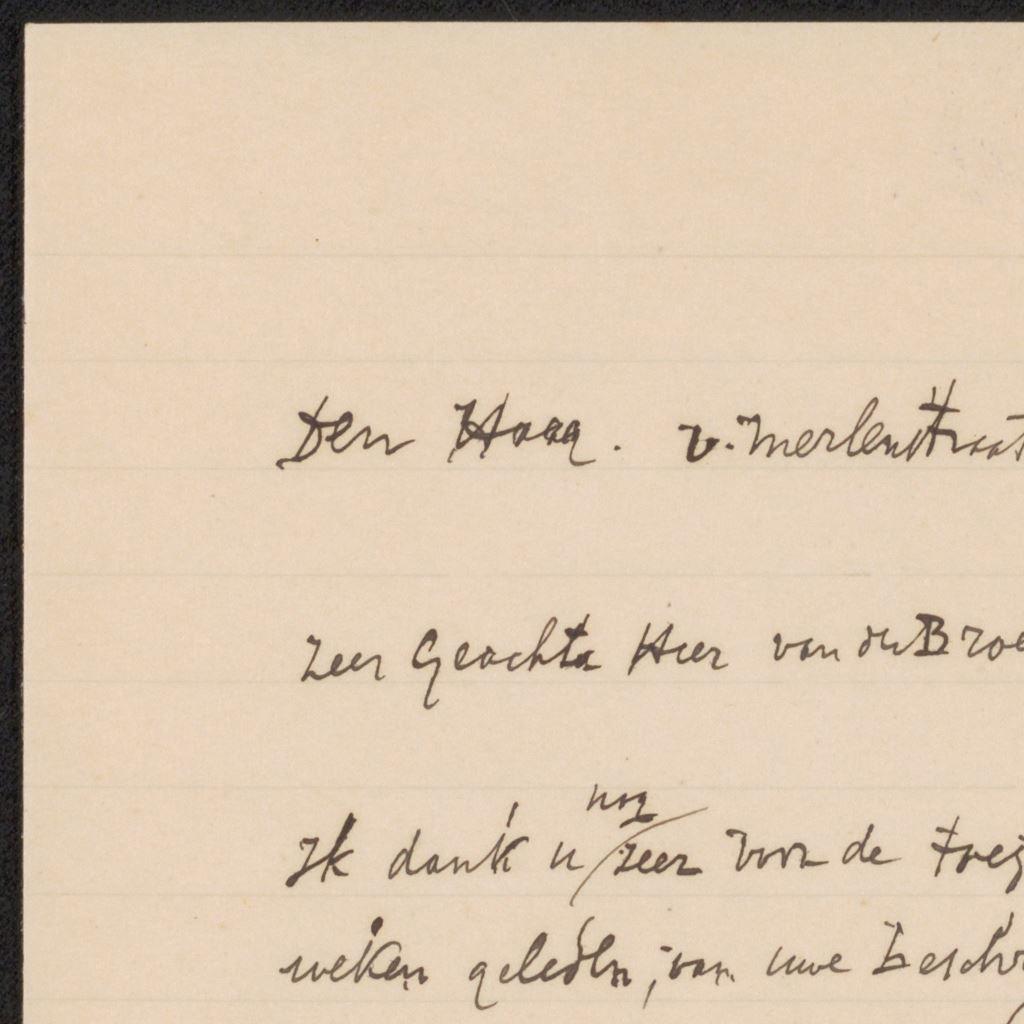 Den Haag. v. Merlenstraat
Zeer Geachte Heer van den Broe
nog
Ik dank u zeer voor de toez
weken geleden, van uwe Beschr